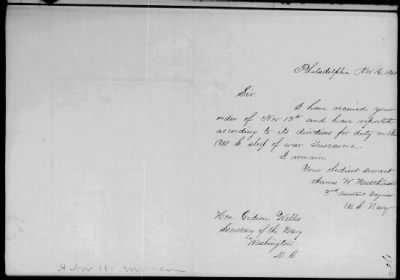 Philadelphia Nov 16
Sir
I have received your
order of Nov 13th and have reported
according to its directions for duty on the
U S sloop of war Tuscarora
I remain
Your obedient servant
James W
2nd Assistant Engineer
U.S. Navy
Hon Gideon Welles
Secretary of the Navy
Washington
D. C.